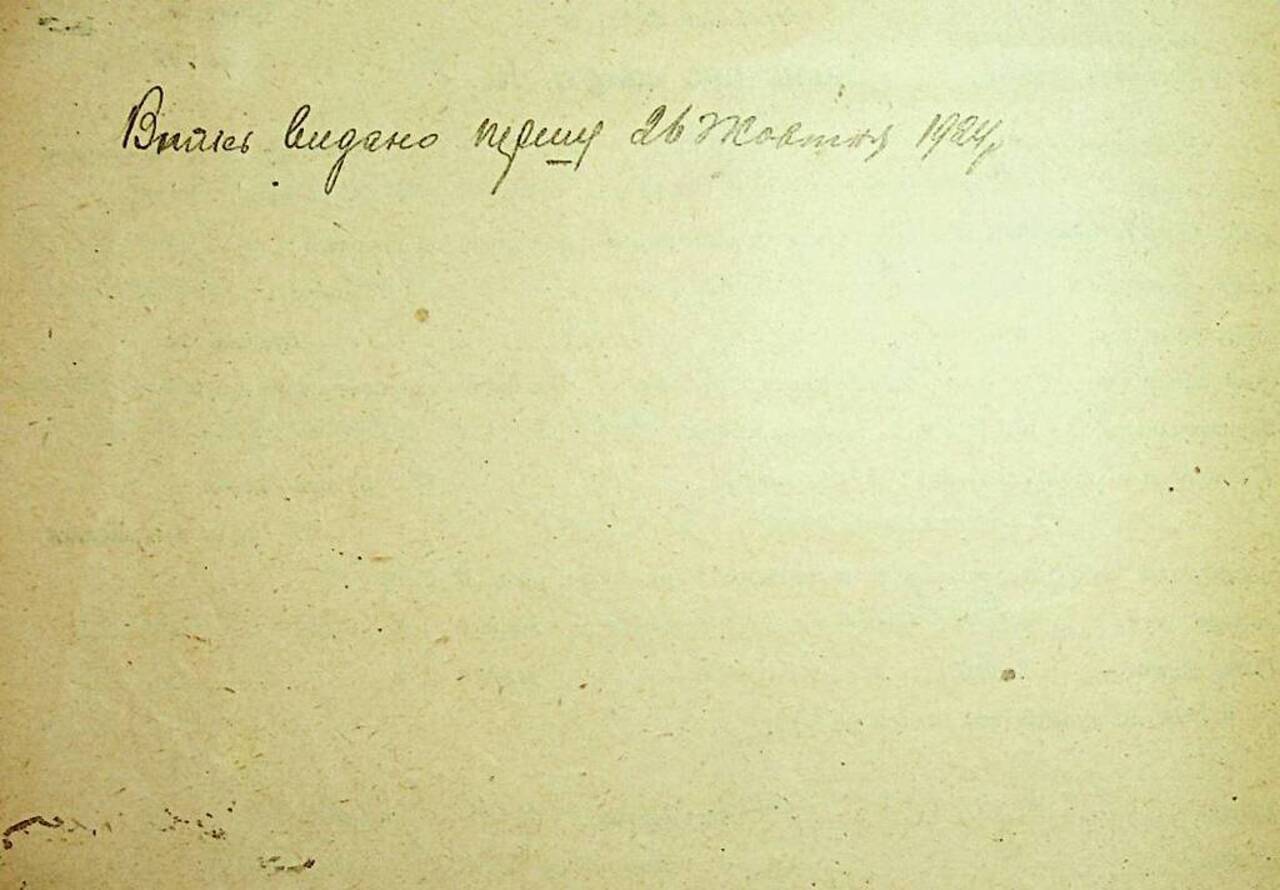 Витяг видано першу 26 Жовтня 1924р